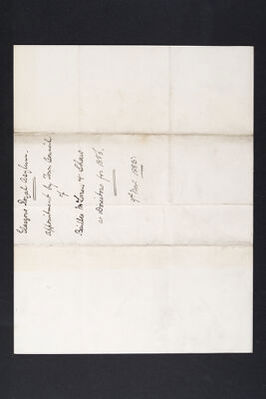 Glasgow Royal Asylum.
Appointment by Town Council
of
Bailies McLaren & Shaw
as Directors for 1886.
9th Nov. 1885